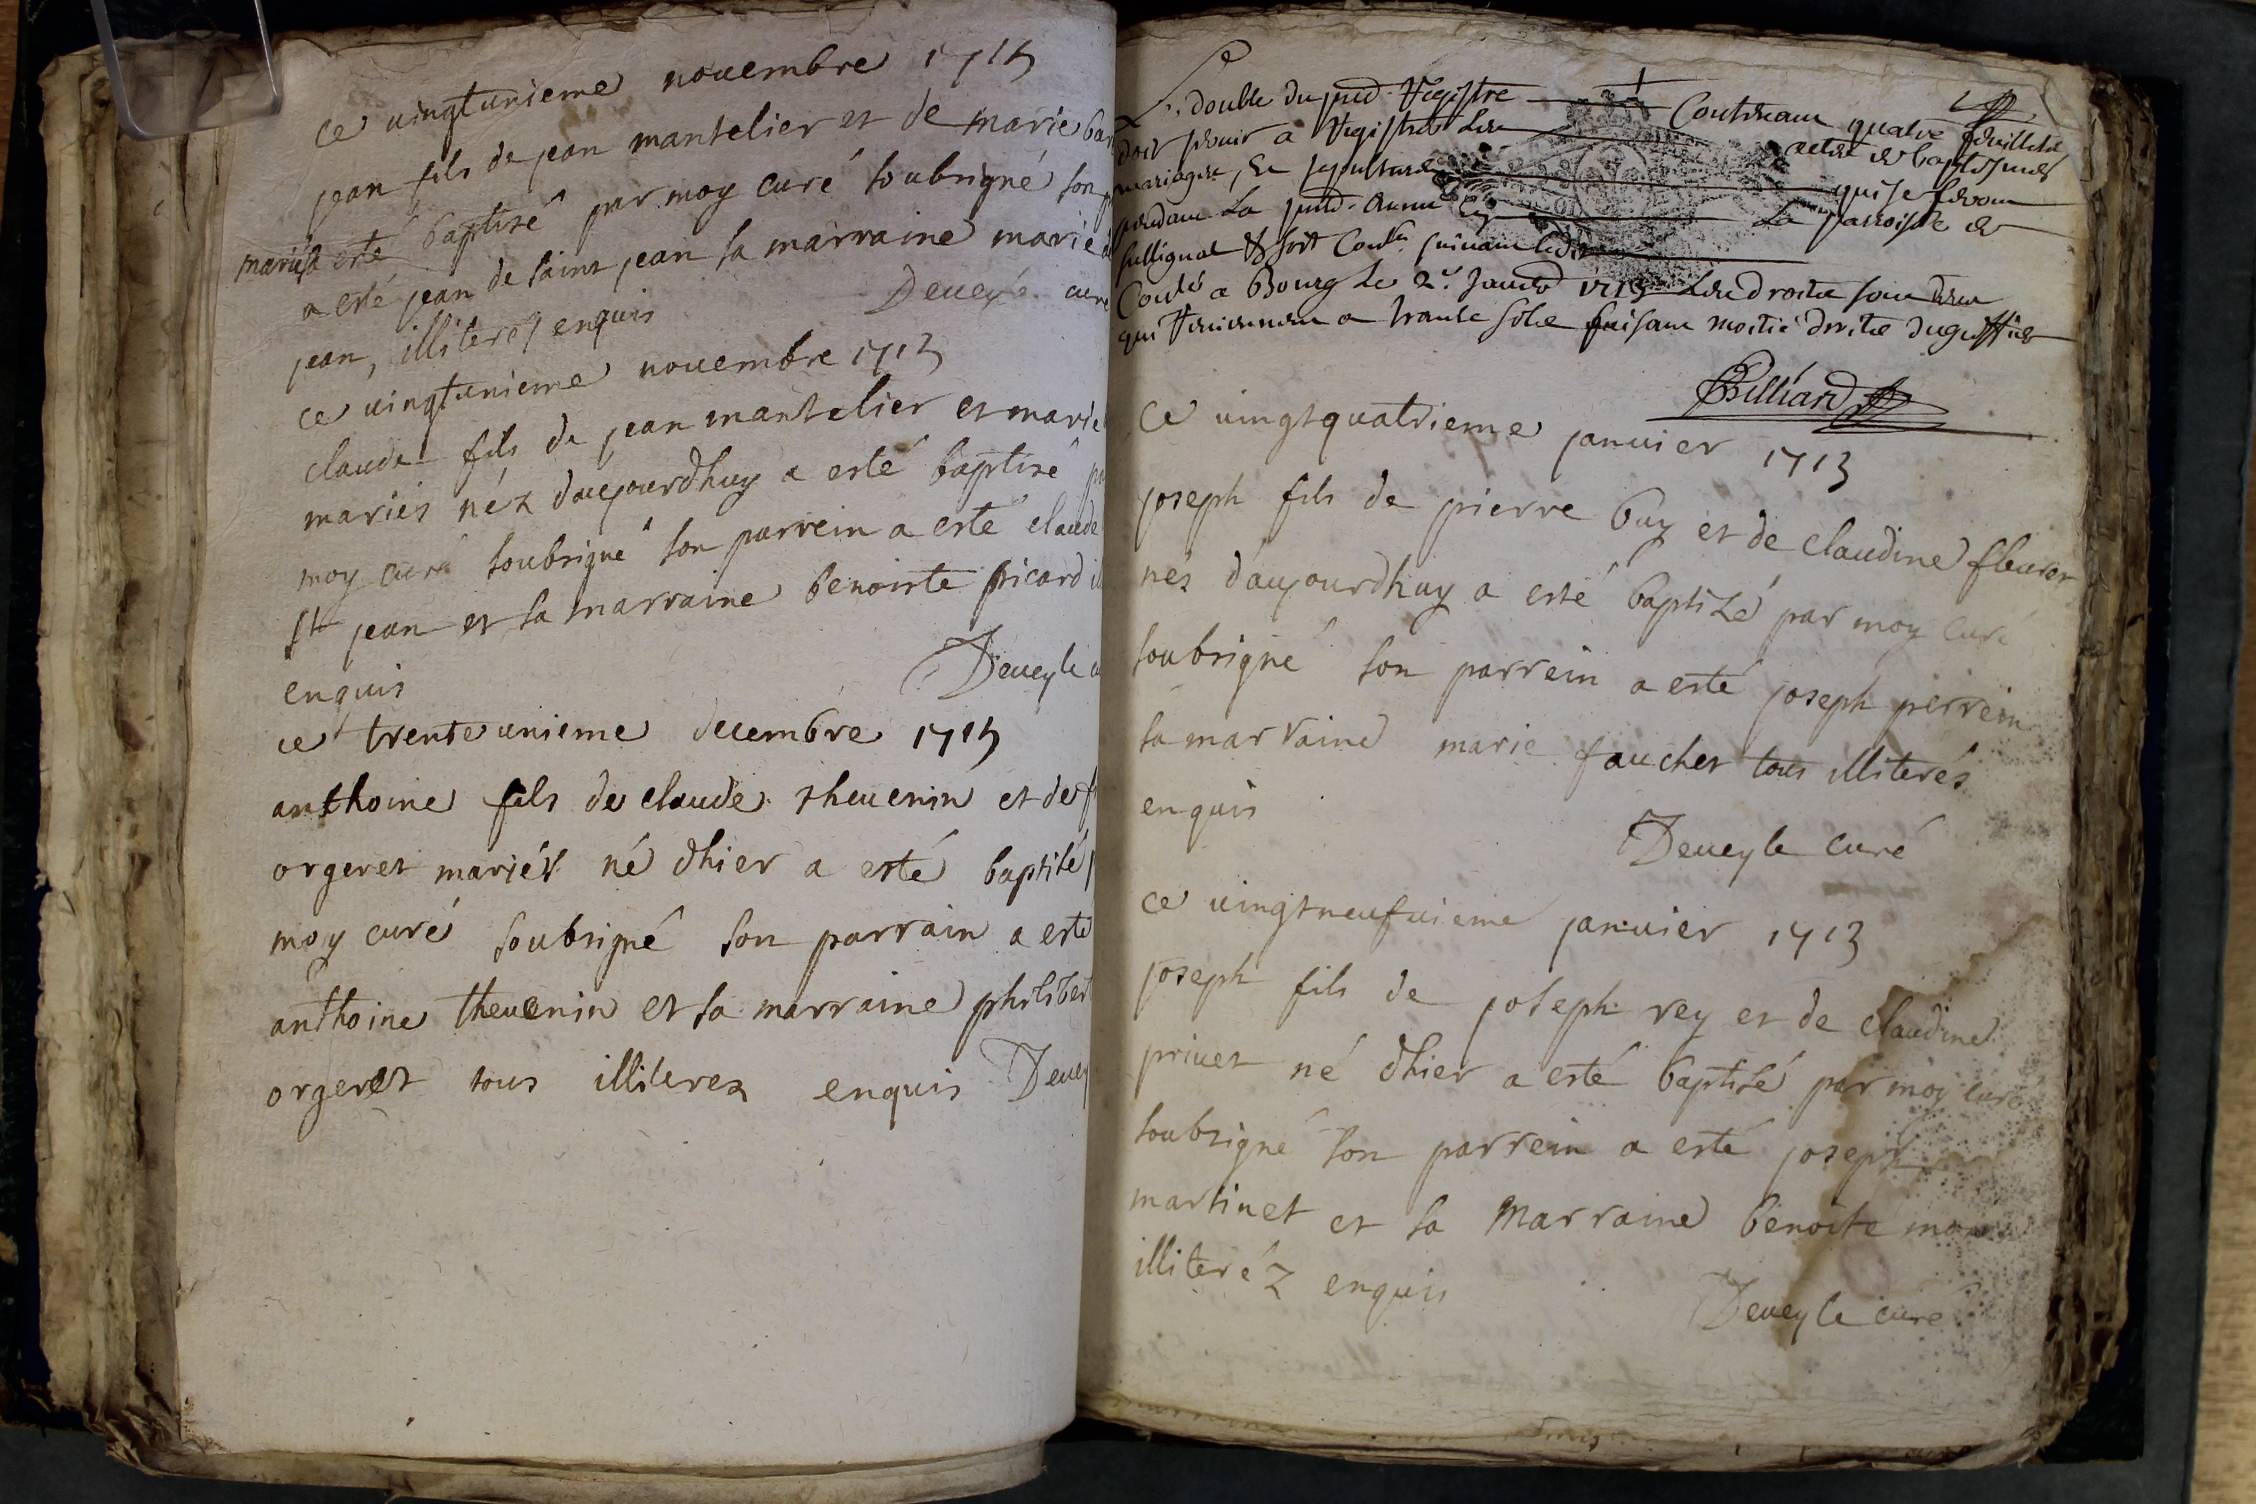 ce vingtunieme novembre 1713
jean fils de jean mantelier et de marie bar
mariés a esté baptisé par moy curé soubsigné son p
a esté jean de saint jean sa marraine marie
jean, illiterés enquis Deveyle curé
ce vingtunieme novembre 1713
claude fils de jean mantelier et marie
mariés néz daujourdhuy a esté baptisé p
moy curé soubsigné son parrein a esté claude
st jean et sa marraine benoiste picard il
enquis Deveyle c
ce trente unieme decembre 1713
anthoine fils de claude thevenin et de f
orgeret mariés né dhier a esté baptisé p
moy curé soubsigné son parrain a esté
anthoine thevenin et sa marraine philibert
orgeret tous illiterez enquis Devey
Le double du pnt Registre Contenant quatre feuillets
doit servir a Registrer Les actes de baptesmes
mariages, Et sepultures qui se feront
pendant La pnte Année En La parroisse de
sullignat Et sera suivant Ledit
Cotté a Bourg Le 2e Janvier 1713 Les droits sont deux
qui Reviennent a trante sols faisant moitié droits du greffier
Billiard
ce vingtquatrieme janvier 1713
joseph fils de pierre buy et de claudine fleuret
nés daujourdhuy a esté baptizé par moy curé
soubsigné son parrein a esté joseph perrein
sa marraine marie faucher tous illiterés
enquis
Deveyle curé
ce vingtneufvieme janvier 1713
joseph fils de joseph rey et de claudine
privet né dhier a esté baptisé par moy curé
soubsigné son parrein a esté joseph
martinet et sa marraine benoite
illiteréz enquis
Deveyle curé